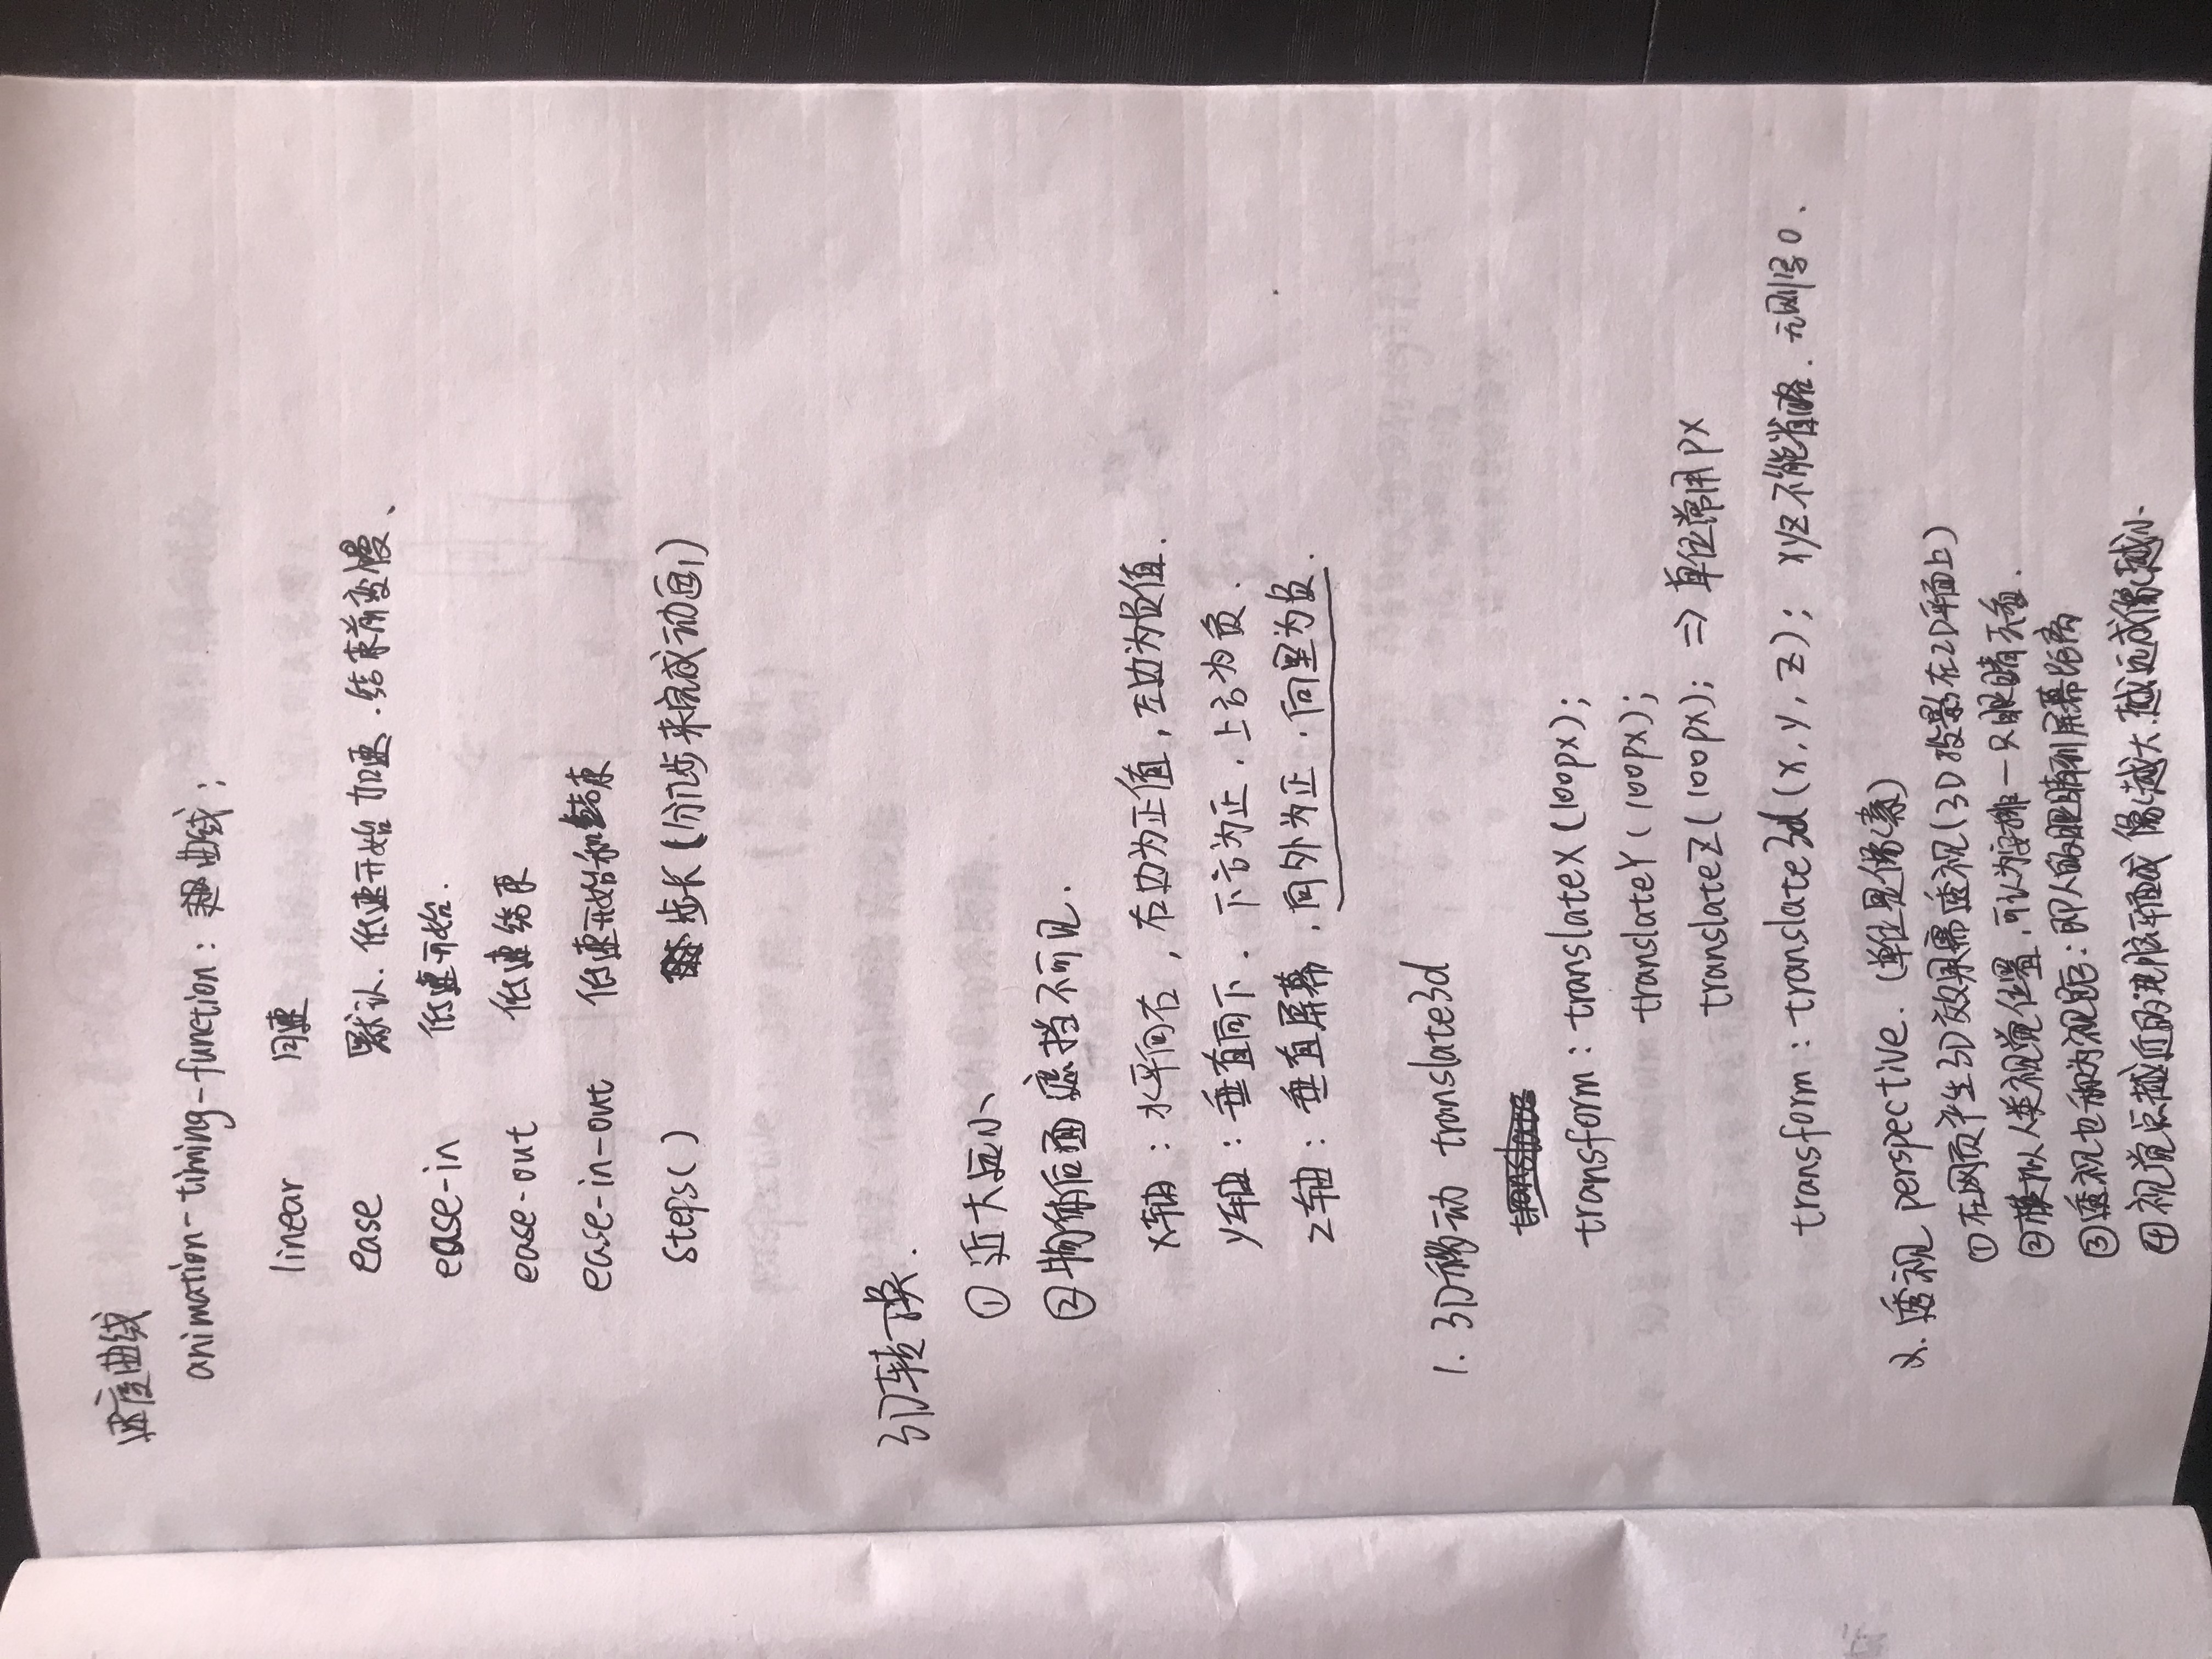 速度曲线
animation-timing-function: 曲线;
linear 匀速
ease 默认. 低速开始 加速. 结束前变慢、
ease-in 低速开始.
ease-out 低速结束
ease-in-out 低速开始和结束
steps() 步长(分几步来完成动画)
3D转换.
① 近大远小
② 物体后面遮挡不可见.
x轴: 水平向右, 右边为正值, 左边为负值.
y轴: 垂直向下. 下方为正. 上方为负.
z轴: 垂直屏幕. 向外为正. 向里为负.
1. 3D移动 translate3d
translate
transform: translateX(100px);
translateY(100px);
translateZ(100px); ⇒ 单位常用px
transform: translate3d(x, y, z); xyz不能省略. 无则写0.
2. 透视 perspective. (单位是像素)
①在网页产生3D效果需透视(3D投影在2D平面上)
②模拟人类视觉位置,可认为安排一只眼睛去看.
③透视也称为视距:即人的眼睛到屏幕距离
④视觉点越近的电脑平面成像越大.越远成像越小.